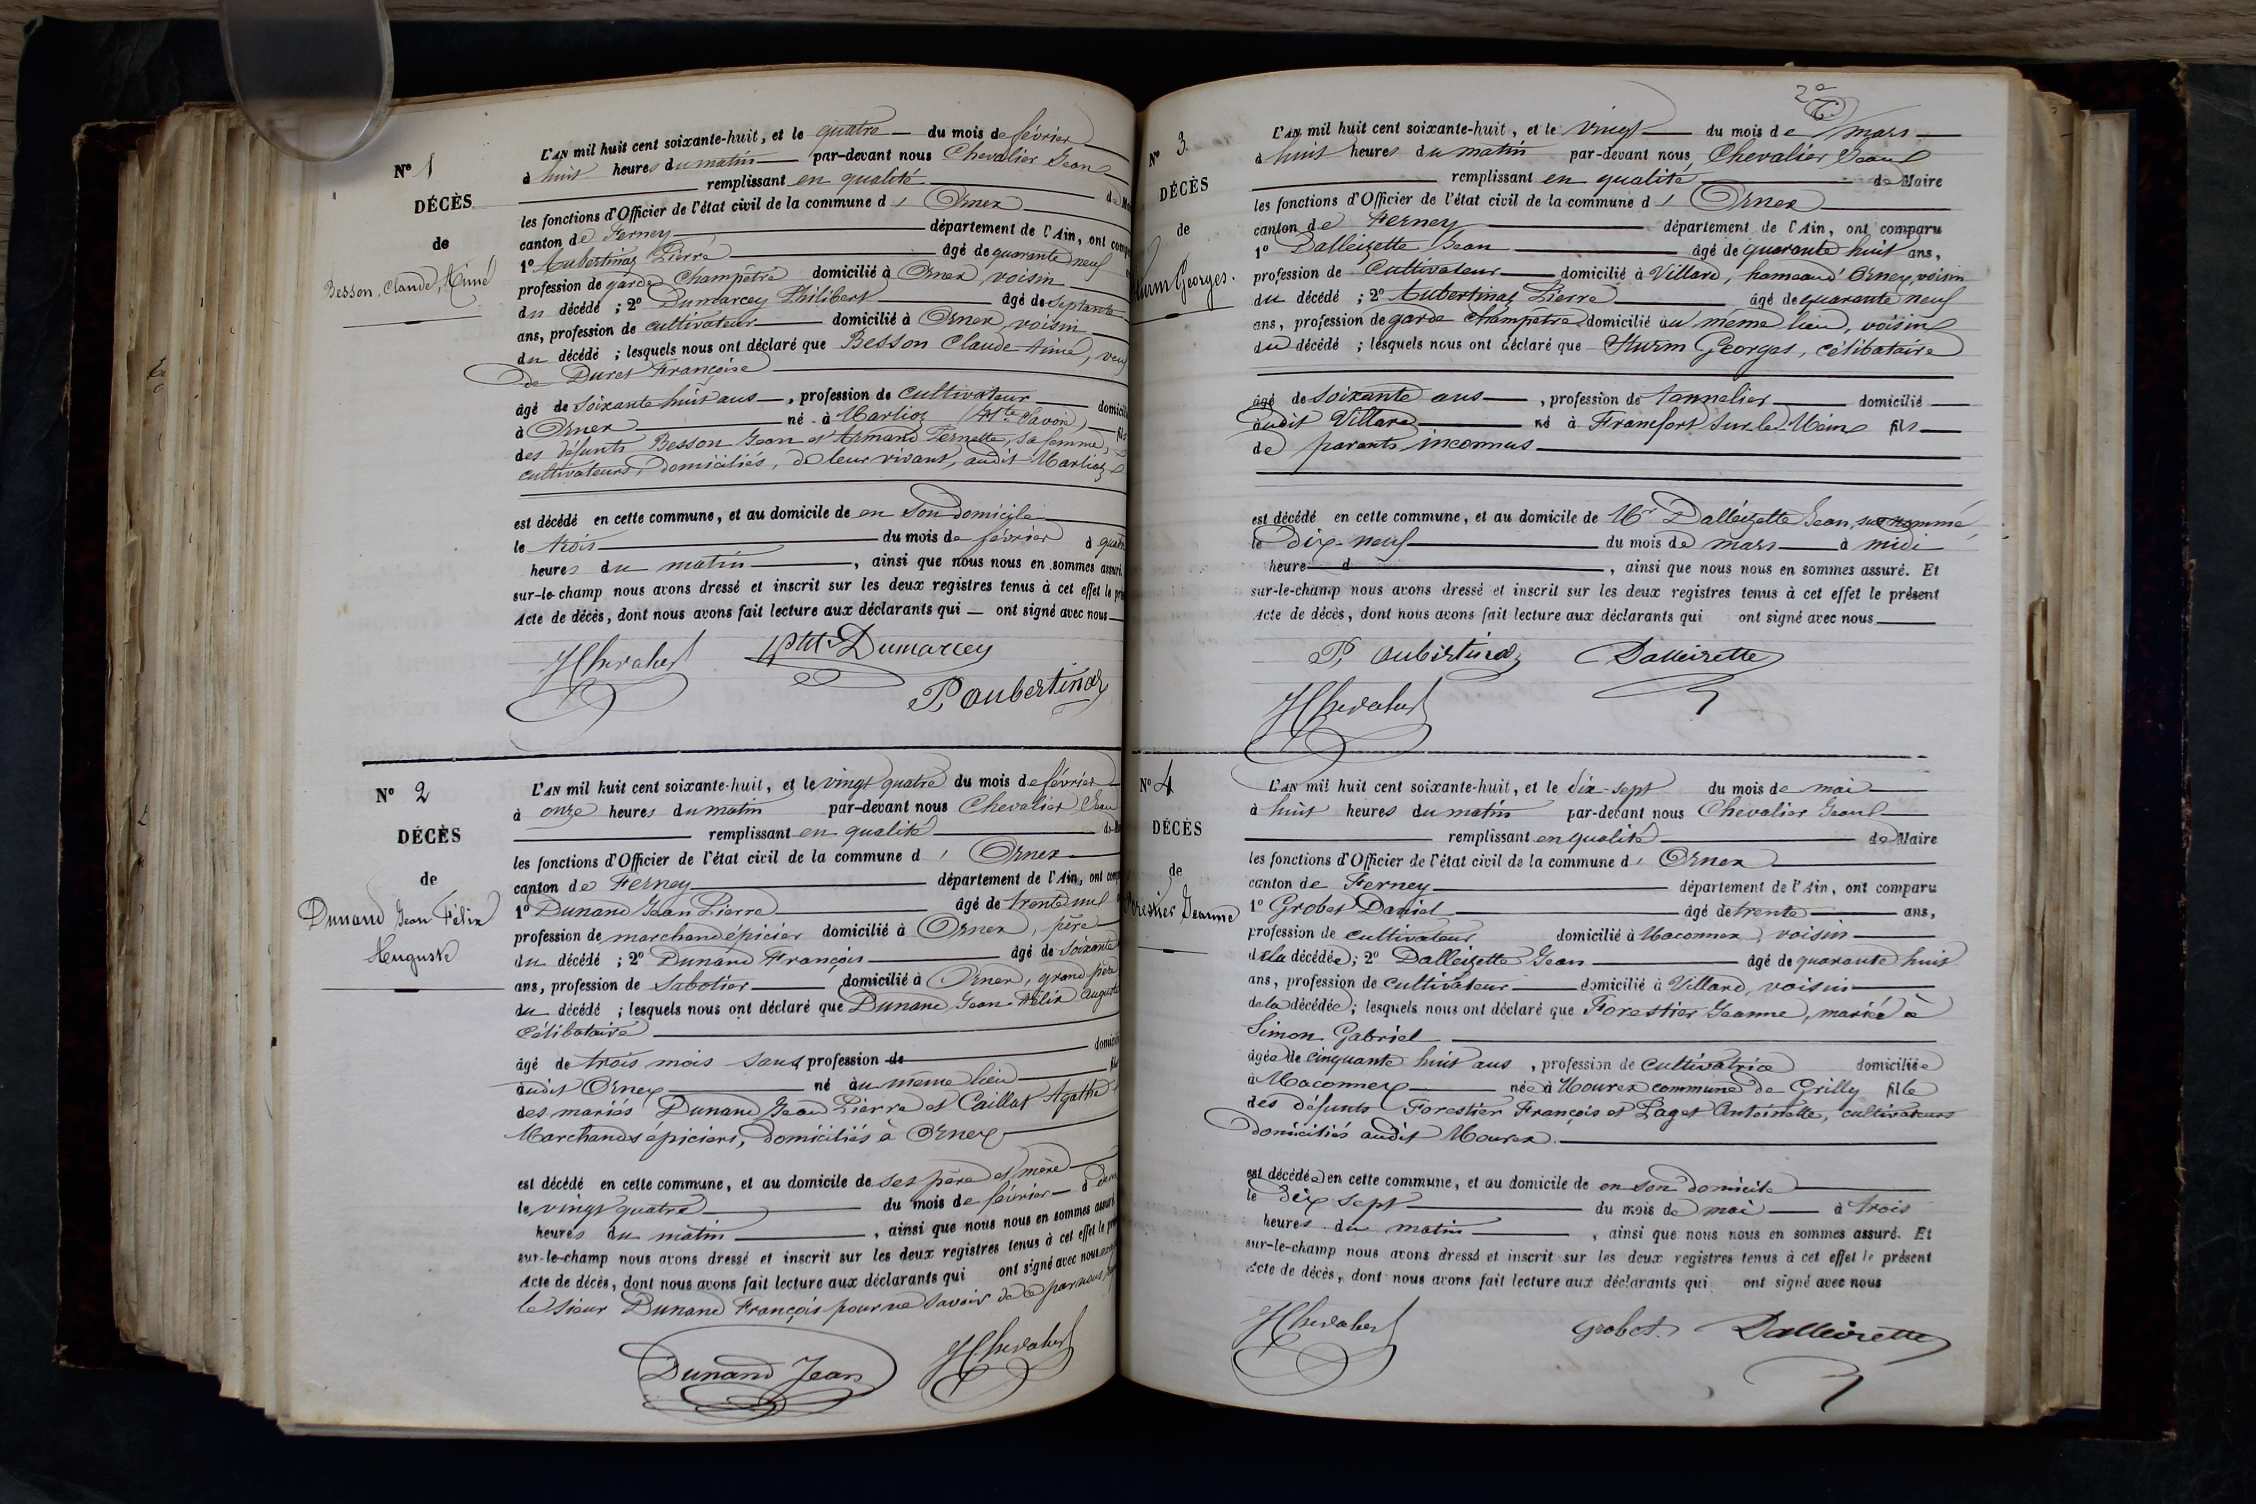 N° 1
DÉCÈS
de
Besson, Claude, Aimé
L'AN mil huit cent soixante-huit, et le quatre du mois de février
à huit heures du matin par-devant nous Chevalier Jean
remplissant en qualité de
les fonctions d'Officier de l'état civil de la commune d' Ornex
canton de Ferney département de l'Ain, ont
1° Aubertinaz Pierre âgé de quarante neuf
profession de garde Champêtre domicilié à Ornex, voisin
du décédé ; 2° Dumarcey Philibert âgé de septante
ans, profession de cultivateur domicilié à Ornex, voisin
du décédé ; lesquels nous ont déclaré que Besson Claude Aimé, veuf
de Duret Françoise
âgé de soixante huit ans , profession de cultivateur
à Ornex né à Marlioz (Hte Savoie)
des défunts Besson Jean et Armand Pernette, sa femme,
cultivateurs, domiciliés, de leur vivant, audit Marlioz
est décédé en cette commune, et au domicile de en son domicile
le trois du mois de février à
heures du matin , ainsi que nous nous en sommes assuré.
sur-le-champ nous avons dressé et inscrit sur les deux registres tenus à cet effet le
Acte de décès, dont nous avons fait lecture aux déclarants qui — ont signé avec nous
JChevalier Dumarcey
P. Aubertinaz
N° 2
DÉCÈS
de
Dunand Jean Félix
Auguste
L'AN mil huit cent soixante-huit, et le vingt quatre du mois de février
à onze heures du matin par-devant nous Chevalier Jean
remplissant en qualité
les fonctions d'Officier de l'état civil de la commune d' Ornex
canton de Ferney département de l'Ain, ont
1° Dunand Jean Pierre âgé de trente
profession de marchand épicier domicilié à Ornex, père
du décédé ; 2° Dunand François âgé de soixante
ans, profession de Sabotier domicilié à Ornex, grand père
du décédé ; lesquels nous ont déclaré que Dunand Jean Félix Auguste
célibataire
âgé de trois mois sans profession de
audit Ornex né au même lieu
des mariés Dunand Jean Pierre et Caillat Agathe
Marchands épiciers, domiciliés à Ornex
est décédé en cette commune, et au domicile de ses père et mère
le vingt quatre du mois de février à
heures du matin , ainsi que nous nous en sommes assuré
sur-le-champ nous avons dressé et inscrit sur les deux registres tenus à cet effet le
Acte de décès, dont nous avons fait lecture aux déclarants qui ont signé avec nous
le sieur Dunand François pour ne savoir de ce par nous
Dunand Jean JChevalier
N° 3
DÉCÈS
de
Sturm Georges.
L'AN mil huit cent soixante-huit, et le vingt du mois de mars
à huit heures du matin par-devant nous Chevalier Jean
remplissant en qualité de Maire
les fonctions d'Officier de l'état civil de la commune d' Ornex
canton de Ferney département de l'Ain, ont comparu
1° Dalleizette Jean âgé de quarante huit ans,
profession de Cultivateur domicilié à Villard, hameau d'Ornex, voisin
du décédé ; 2° Aubertinaz Pierre âgé de quarante neuf
ans, profession de garde champêtre domicilié au même lieu, voisin
du décédé ; lesquels nous ont déclaré que Sturm Georges, célibataire
âgé de soixante ans , profession de tonnelier domicilié
audit Villard né à Francfort sur le Mein fils
de parents inconnus
est décédé en cette commune, et au domicile de Mr Dalleizette Jean, sus nommé,
le dix-neuf du mois de mars à midi
heure d , ainsi que nous nous en sommes assuré. Et
sur-le-champ nous avons dressé et inscrit sur les deux registres tenus à cet effet le présent
Acte de décès, dont nous avons fait lecture aux déclarants qui ont signé avec nous
P. Aubertinaz Dalleizette
JChevalier
N° 4
DÉCÈS
de
Forestier Jeanne
L'AN mil huit cent soixante-huit, et le dix-sept du mois de mai
à huit heures du matin par-devant nous Chevalier Jean
remplissant en qualité de Maire
les fonctions d'Officier de l'état civil de la commune d' Ornex
canton de Ferney département de l'Ain, ont comparu
1° Grobet Daniel âgé de trente ans,
profession de cultivateur domicilié à Maconnex, voisin
de la décédée ; 2° Dalleizette Jean âgé de quarante huit
ans, profession de cultivateur domicilié à Villard, voisin
de la décédée ; lesquels nous ont déclaré que Forestier Jeanne, mariée à
Simon Gabriel
âgée de cinquante huit ans , profession de cultivatrice domiciliée
à Maconnex née à Mourex commune de Grilly fille
des défunts Forestier François et Paget Antoinette, cultivateurs
domiciliés audit Mourex.
est décédée en cette commune, et au domicile de en son domicile
le dix sept du mois de mai à trois
heures du matin , ainsi que nous nous en sommes assuré. Et
sur-le-champ nous avons dressé et inscrit sur les deux registres tenus à cet effet le présent
Acte de décès, dont nous avons fait lecture aux déclarants qui ont signé avec nous
JChevalier Grobet. Dalleizette